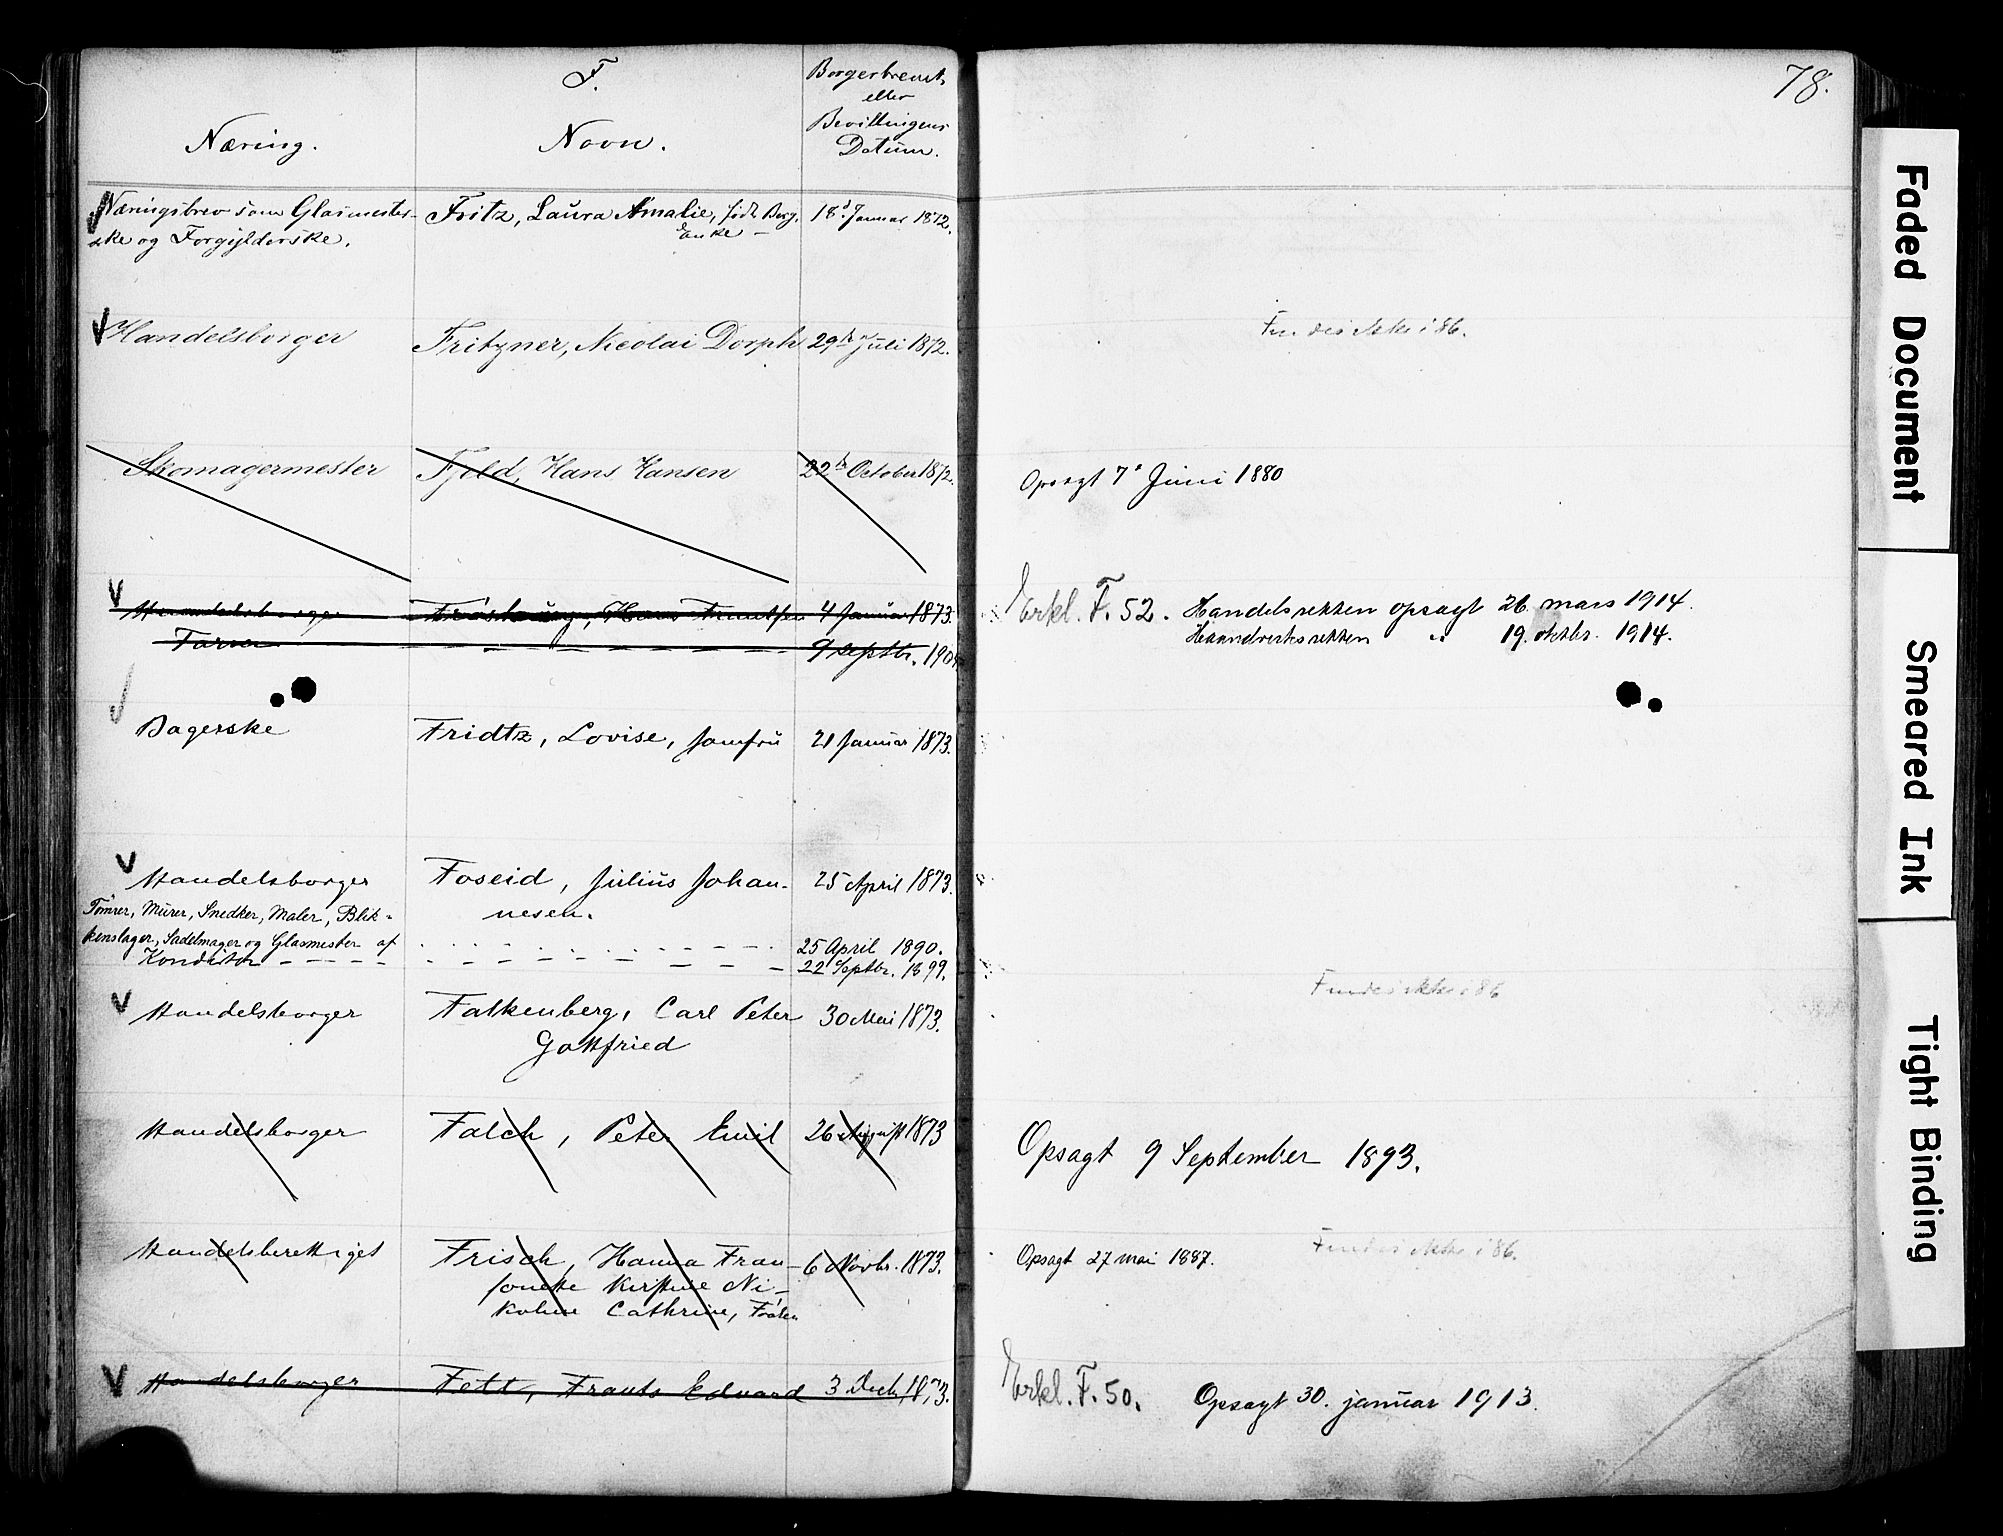 F.
Borgerbrevets
eller
Bevillingens
Datum.
Næring.
Navn.
78.
Næringsbrev som Glasmester-
ske og Forgylderske.
Fritz, Laura Amalie, født Berg,
Enke —
18d. Januar 1872.
Handelsborger
Fritzner, Nicolai Dorph
29de Juli 1872.
Findes ikke i 86.
Skomagermester
Fjeld, Hans Hansen
22de October 1872.
Opsagt 7de Juni 1880
Handelsborger
Hans Knudsen
4 Januar 1873.
Erkl. F. 52. Handelsretten opsagt 26. mars 1914.
Haandverksretten " 19. oktbr. 1914.
Farver
9 septbr. 190
Bagerske
Fridtz, Lovise, Jomfru
21 Januar 1873.
Handelsborger
Foseid, Julius Johan-
nesen.
25 April 1873.
Tømrer, Murer, Snedker, Maler, Blik-
kenslager, Sadelmager og Glasmester af
25 April 1890.
Konditor
22 Septbr. 1899.
Handelsborger
Falkenberg, Carl Peter
Gottfried
30 Mai 1873.
Findes ikke i 86
Handelsborger
Falch, Peter Emil
26 August 1873
Opsagt 9 September 1893.
Handelsberettiget
Frisch, Hanna Fran-
sonette Kirstine Ni-
koline Cathrine, Frøken
6 Novbr. 1873.
Opsagt 27 mai 1887.
Findes ikke i 86.
Handelsborger
Fett, Frants Edvard
3 Decb. 1873.
Erkl. F. 50.
Opsagt 30. januar 1913.
Faded Document
Smeared Ink
Tight Binding